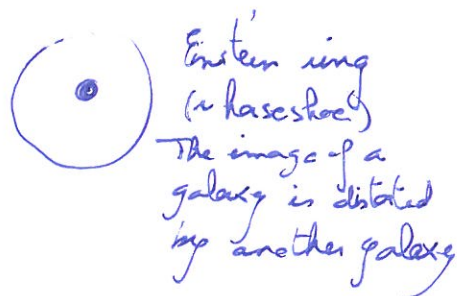 Einstein ring
(or horseshoe)
The image of a
galaxy is distorted
by another galaxy